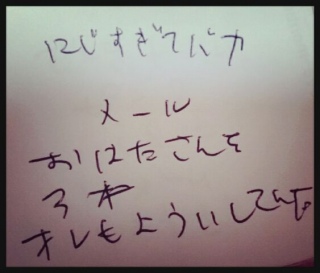 にじすぎてバカ
メール
おはたさんを
3本
オレもよういしてんだ